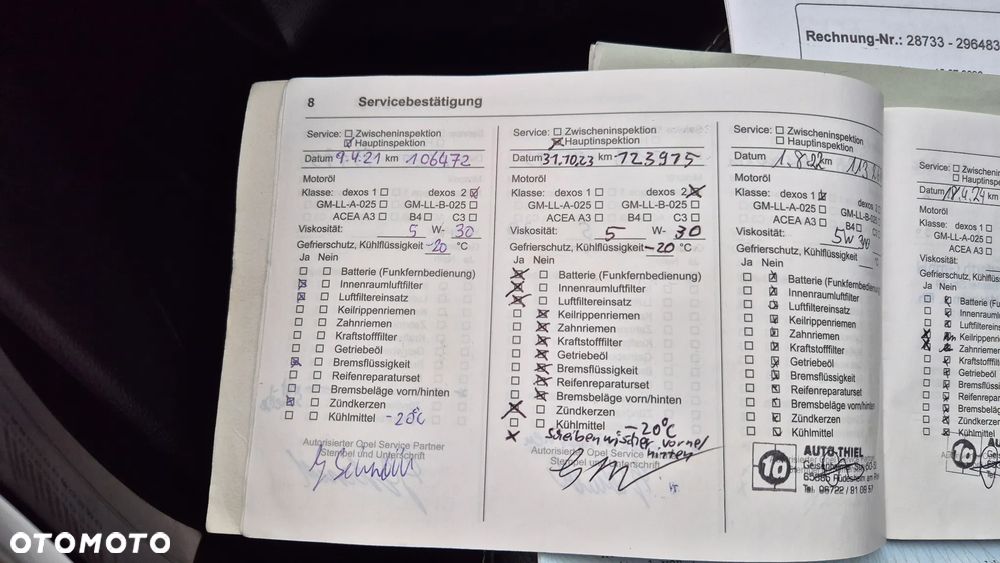 Rechnung-Nr.: 28733 - 296483
8 Servicebestätigung
Service: Zwischeninspektion
Hauptinspektion
Datum 9.4.21 km 106472
Motoröl
Klasse: dexos 1 dexos 2
GM-LL-A-025 GM-LL-B-025
ACEA A3 B4 C3
Viskosität: 5 W- 30
Gefrierschutz, Kühlflüssigkeit -20 °C
Ja Nein
Batterie (Funkfernbedienung)
Innenraumluftfilter
Luftfiltereinsatz
Keilrippenriemen
Zahnriemen
Kraftstofffilter
Getriebeöl
Bremsflüssigkeit
Reifenreparaturset
Bremsbeläge vorn/hinten
Zündkerzen
Kühlmittel -20°C
Autorisierter Opel Service Partner
Stempel und Unterschrift
Service: Zwischeninspektion
Hauptinspektion
Datum 31.10.23 km 123975
Motoröl
Klasse: dexos 1 dexos 2
GM-LL-A-025 GM-LL-B-025
ACEA A3 B4 C3
Viskosität: 5 W- 30
Gefrierschutz, Kühlflüssigkeit -20 °C
Ja Nein
Batterie (Funkfernbedienung)
Innenraumluftfilter
Luftfiltereinsatz
Keilrippenriemen
Zahnriemen
Kraftstofffilter
Getriebeöl
Bremsflüssigkeit
Reifenreparaturset
Bremsbeläge vorn/hinten
Zündkerzen
Kühlmittel -20°C
x Scheibenwischer vorne/
hinten
Autorisierter Opel Service
Stempel und Unterschrift
Service: Zwischeninspektion
Hauptinspektion
Datum 1.8.22 km
Motoröl
Klasse: dexos 1 dexos 2
GM-LL-A-025 GM-LL-B-025
ACEA A3 B4 C3
Viskosität: 5W30
Gefrierschutz, Kühlflüssigkeit °C
Ja Nein
Batterie (Funkfernbedienung)
Innenraumluftfilter
Luftfiltereinsatz
Keilrippenriemen
Zahnriemen
Kraftstofffilter
Getriebeöl
Bremsflüssigkeit
Reifenreparaturset
Bremsbeläge vorn/hinten
Zündkerzen
Kühlmittel
1a AUTO THIEL
Geisenheimer Str.
65385 Rüdesheim am
Tel. 06722 / 81 08 57
Service: Zwischenins
Hauptinspekt
Datum 18.4.24 km
Motoröl
Klasse: dexos 1
GM-LL-A-025
ACEA A3
Viskosität:
Gefrierschutz, Kühlflüss
Ja Nein
Batterie (Fu
Innenraumlu
Luftfilterein
Keilrippenrie
Zahnriemen
Kraftstofffil
Getriebeöl
Bremsflüssi
Reifenrepar
Bremsbeläg
Zündkerzen
Kühlmittel
1a
OTOMOTO